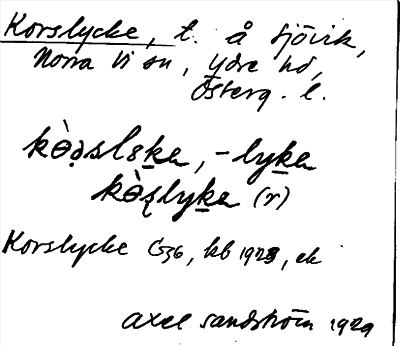 Korslycke, t. å Sjövik,
Norra Vi sn, Ydre hd,
Österg. l.
kɵ̀ə̣slske, -lyke
kɵ̀ʂlyke (r)
Korslycke G36, kb 1928, ek
Axel Sandström 1929